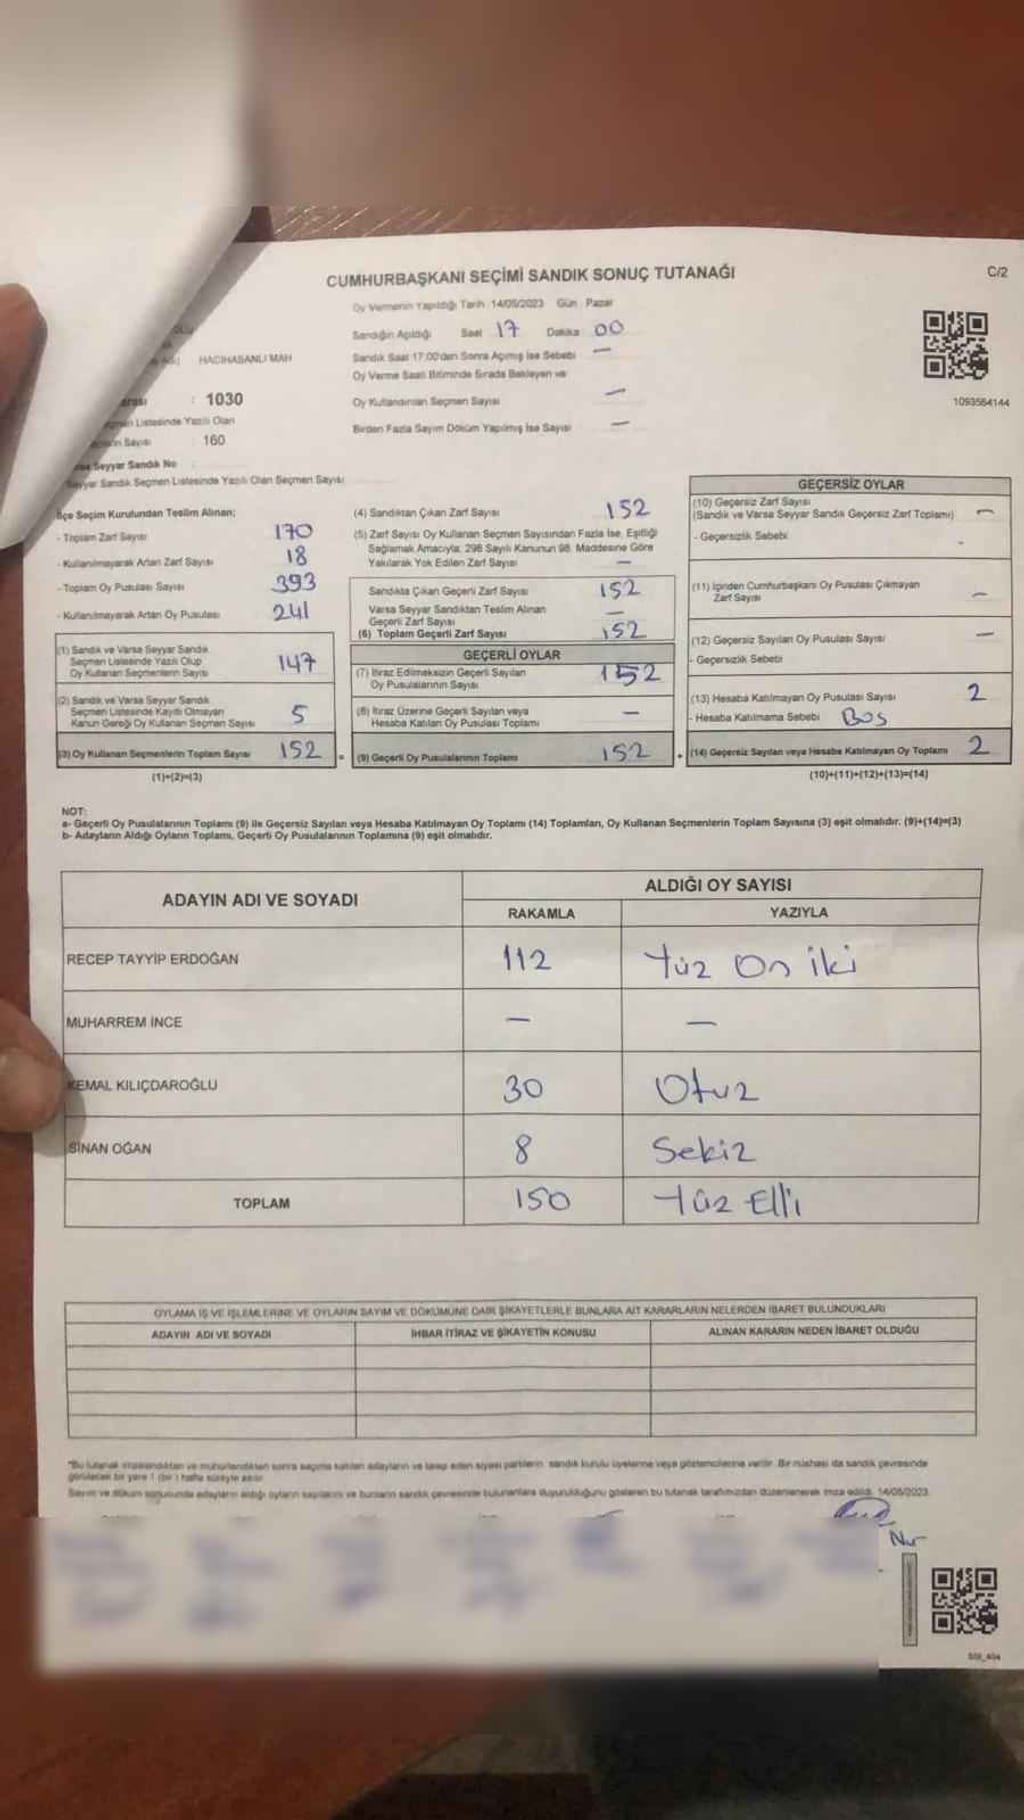 CUMHURBAŞKANI SEÇİMİ SANDIK SONUÇ TUTANAĞI
C/2
Oy Vermenin Yapıldığı Tarih 14/05/2023 Gün Pazar
Sandığın Açıldığı Saat 17 Dakika 00
HACIHASANLI MAH
Sandık Saat 17.00'den Sonra Açılmış İse Sebebi —
Oy Verme Saati Bitiminde Sırada Bekleyen ve
Oy Kullandırılan Seçmen Sayısı —
: 1030
1093564144
Listesinde Yazılı Olan
Birden Fazla Sayım Döküm Yapılmış İse Sayısı —
Sayısı 160
Seyyar Sandık No
Seyyar Sandık Seçmen Listesinde Yazılı Olan Seçmen Sayısı
İlçe Seçim Kurulundan Teslim Alınan;
- Toplam Zarf Sayısı 170
- Kullanılmayarak Artan Zarf Sayısı 18
- Toplam Oy Pusulası Sayısı 393
- Kullanılmayarak Artan Oy Pusulası 241
(1) Sandık ve Varsa Seyyar Sandık
Seçmen Listesinde Yazılı Olup
Oy Kullanan Seçmenlerin Sayısı 147
(2) Sandık ve Varsa Seyyar Sandık
Seçmen Listesinde Kayıtlı Olmayan
Kanun Gereği Oy Kullanan Seçmen Sayısı 5
(3) Oy Kullanan Seçmenlerin Toplam Sayısı 152
(1)+(2)=(3)
(4) Sandıktan Çıkan Zarf Sayısı 152
(5) Zarf Sayısı Oy Kullanan Seçmen Sayısından Fazla İse, Eşitliği
Sağlamak Amacıyla, 298 Sayılı Kanunun 98. Maddesine Göre
Yakılarak Yok Edilen Zarf Sayısı —
Sandıkta Çıkan Geçerli Zarf Sayısı 152
Varsa Seyyar Sandıktan Teslim Alınan
Geçerli Zarf Sayısı —
(6) Toplam Geçerli Zarf Sayısı 152
GEÇERLİ OYLAR
(7) İtiraz Edilmeksizin Geçerli Sayılan
Oy Pusulalarının Sayısı 152
(8) İtiraz Üzerine Geçerli Sayılan veya
Hesaba Katılan Oy Pusulası Toplamı —
= (9) Geçerli Oy Pusulalarının Toplamı 152
GEÇERSİZ OYLAR
(10) Geçersiz Zarf Sayısı
(Sandık ve Varsa Seyyar Sandık Geçersiz Zarf Toplamı) —
- Geçersizlik Sebebi
(11) İçinden Cumhurbaşkanı Oy Pusulası Çıkmayan
Zarf Sayısı —
(12) Geçersiz Sayılan Oy Pusulası Sayısı —
- Geçersizlik Sebebi
(13) Hesaba Katılmayan Oy Pusulası Sayısı 2
- Hesaba Katılmama Sebebi Boş
+ (14) Geçersiz Sayılan veya Hesaba Katılmayan Oy Toplamı 2
(10)+(11)+(12)+(13)=(14)
NOT:
a- Geçerli Oy Pusulalarının Toplamı (9) ile Geçersiz Sayılan veya Hesaba Katılmayan Oy Toplamı (14) Toplamları, Oy Kullanan Seçmenlerin Toplam Sayısına (3) eşit olmalıdır. (9)+(14)=(3)
b- Adayların Aldığı Oyların Toplamı, Geçerli Oy Pusulalarının Toplamına (9) eşit olmalıdır.
ADAYIN ADI VE SOYADI
ALDIĞI OY SAYISI
RAKAMLA YAZIYLA
RECEP TAYYİP ERDOĞAN 112 Yüz On iki
MUHARREM İNCE — —
KEMAL KILIÇDAROĞLU 30 Otuz
SİNAN OĞAN 8 Sekiz
TOPLAM 150 Yüz Elli
OYLAMA İŞ VE İŞLEMLERİNE VE OYLARIN SAYIM VE DÖKÜMÜNE DAİR ŞİKAYETLERLE BUNLARA AİT KARARLARIN NELERDEN İBARET BULUNDUKLARI
ADAYIN ADI VE SOYADI İHBAR İTİRAZ VE ŞİKAYETİN KONUSU ALINAN KARARIN NEDEN İBARET OLDUĞU
"Bu tutanak imzalandıktan ve mühürlendikten sonra seçime katılan adayların ve talep eden siyasi partilerin sandık kurulu üyelerine veya gözlemcilerine verilir. Bir nüshası da sandık çevresinde
görülecek bir yere 1 (bir) hafta süreyle asılır.
Sayım ve döküm sonucunda adayların aldığı oyların sayılarını ve bunların sandık çevresinde bulunanlara duyurulduğunu gösteren bu tutanak tarafımızdan düzenlenerek imza edildi. 14/05/2023
Nur